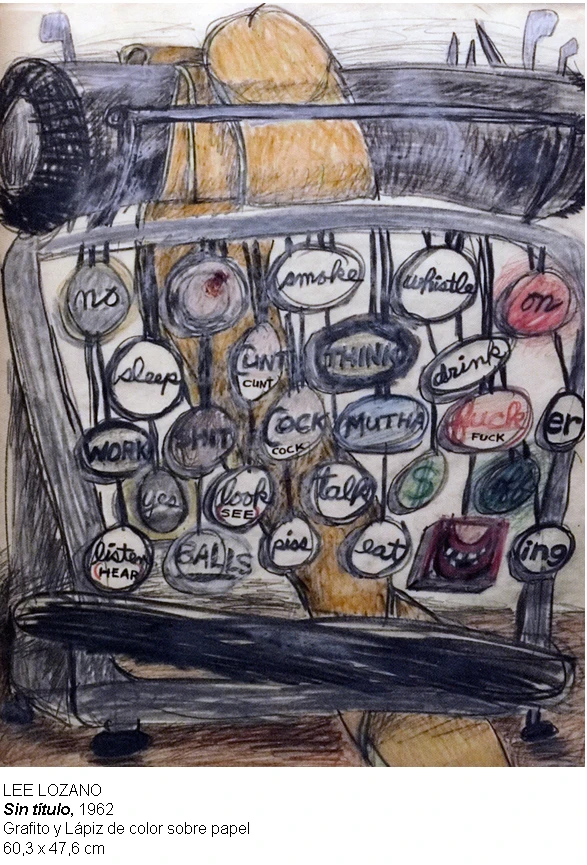 no
smoke
whistle
on
sleep
CUNT
CUNT
THINK
drink
WORK
SHIT
COCK
COCK
MUTHA
fuck
FUCK
er
yes
look
SEE
talk
$
off
listen
HEAR
BALLS
piss
eat
ing
LEE LOZANO
Sin título, 1962
Grafito y Lápiz de color sobre papel
60,3 x 47,6 cm